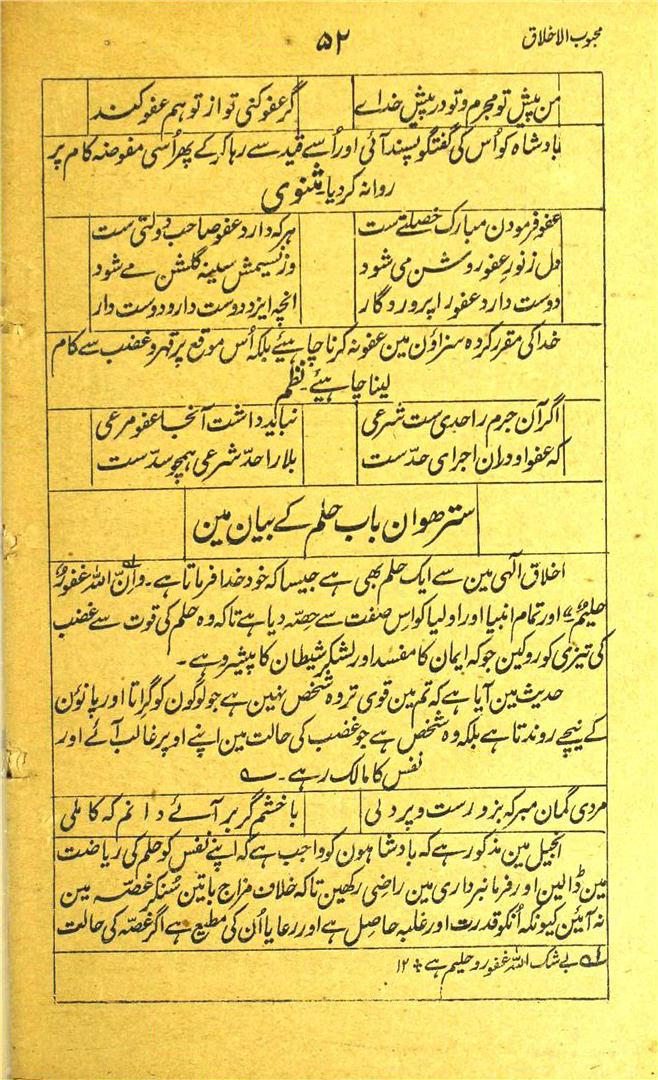 محبوب الاخلاق
۵۲
من پیش تو مجرم و تو در پیش خدائے گر عفو کنی تو از تو ہم عفو کنند
بادشاہ کو اُس کی گفتگو پسند آئی اور اُسے قید سے رہا کر کے پھر اُسی مفوضہ کام پر
روانہ کر دیا۔ مثنوی
عفو فرمودن مبارک خصلتے ست ہر کہ دارد عفو صاحب دولتی ست
دل ز نور عفو روشن می شود وز نسیمش سینہ گلشن مے شود
دوست دارد عفو را پروردگار انچہ ایزد دوست دارد دوست دار
خدا کی مقرر کردہ سزاؤن مین عفو نہ کرنا چاہئیے بلکہ اُس موقع پر قہر و غضب سے کام
لینا چاہئیے۔ نظم
اگر آن جرم را حدی ست شرعی نباید داشت آنجا عفو مرعی
کہ عفو او دران اجرای حدّ ست بلا را حدّ شرعی ہمچو سدّ ست
سترھوان باب حلم کے بیان مین
اخلاق الٰہی مین سے ایک حلم بھی ہے جیسا کہ خود خدا فرماتا ہے۔ واِنّ اللہ غفورٌ
حلیمٌ اور تمام انبیا اور اولیا کو اس صفت سے حصّہ دیا ہے تاکہ وہ حلم کی قوت سے غضب
کی تیزی کو روکین جو کہ ایمان کا مفسد اور لشکر شیطان کا پیشرو ہے۔
حدیث مین آیا ہے کہ تم مین قوی تر وہ شخص نہین ہے جو لوگون کو گراتا اور پانؤن
کے نیچے روندتا ہے بلکہ وہ شخص ہے جو غضب کی حالت مین اپنے اوپر غالب آئے اور
نفس کا مالک رہے۔
مردی گمان مبر کہ بزورست و پر دلی با خشم گر بر آئے دانم کہ کاملی
انجیل مین مذکور ہے کہ بادشاہون کو واجب ہے کہ اپنے نفس کو حلم کی ریاضت
مین ڈالین اور فرمانبرداری مین راضی رکھین تاکہ خلاف مزاج باتین سُنکر غصّہ مین
نہ آئین کیونکہ اُنکو قدرت اور غلبہ حاصل ہے اور رعایا اُن کی مطیع ہے اگر غصّہ کی حالت
لے بے شک اللہ غفور و حلیم ہے ۱۲